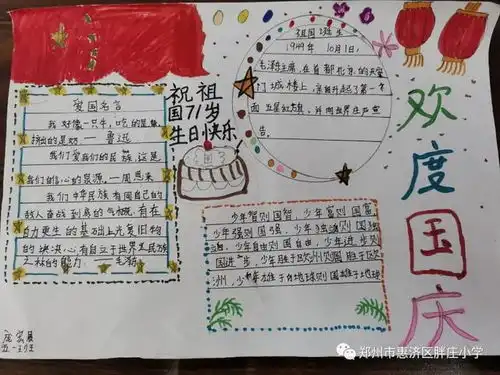 爱国名言
我好像一只牛,吃的是草,
挤出的是奶 — 鲁迅
我们爱我们的民族,这是
我们自信心的泉源。—周恩来
我们中华民族有同自己的
敌人血战到底的气概,有在
自力更生的基础上光复旧物
的决心,有自立于世界民族
之林的能力。——毛
祝祖
国71岁
生日快乐
祖国诞生
1949年10月1日,
毛泽东主席,在首都北京的天安
门城楼上,亲自升起了第一
面五星红旗,并向世界庄严宣
告。
少年智则国智,少年富则国富
少年强则国强,少年独立则国独
立,少年自由则国自由,少年进步则
国进步,少年胜于欧洲则国胜于欧
洲,少年雄于地球则国雄于地球
欢度国庆
五一班
郑州市惠济区胖庄小学